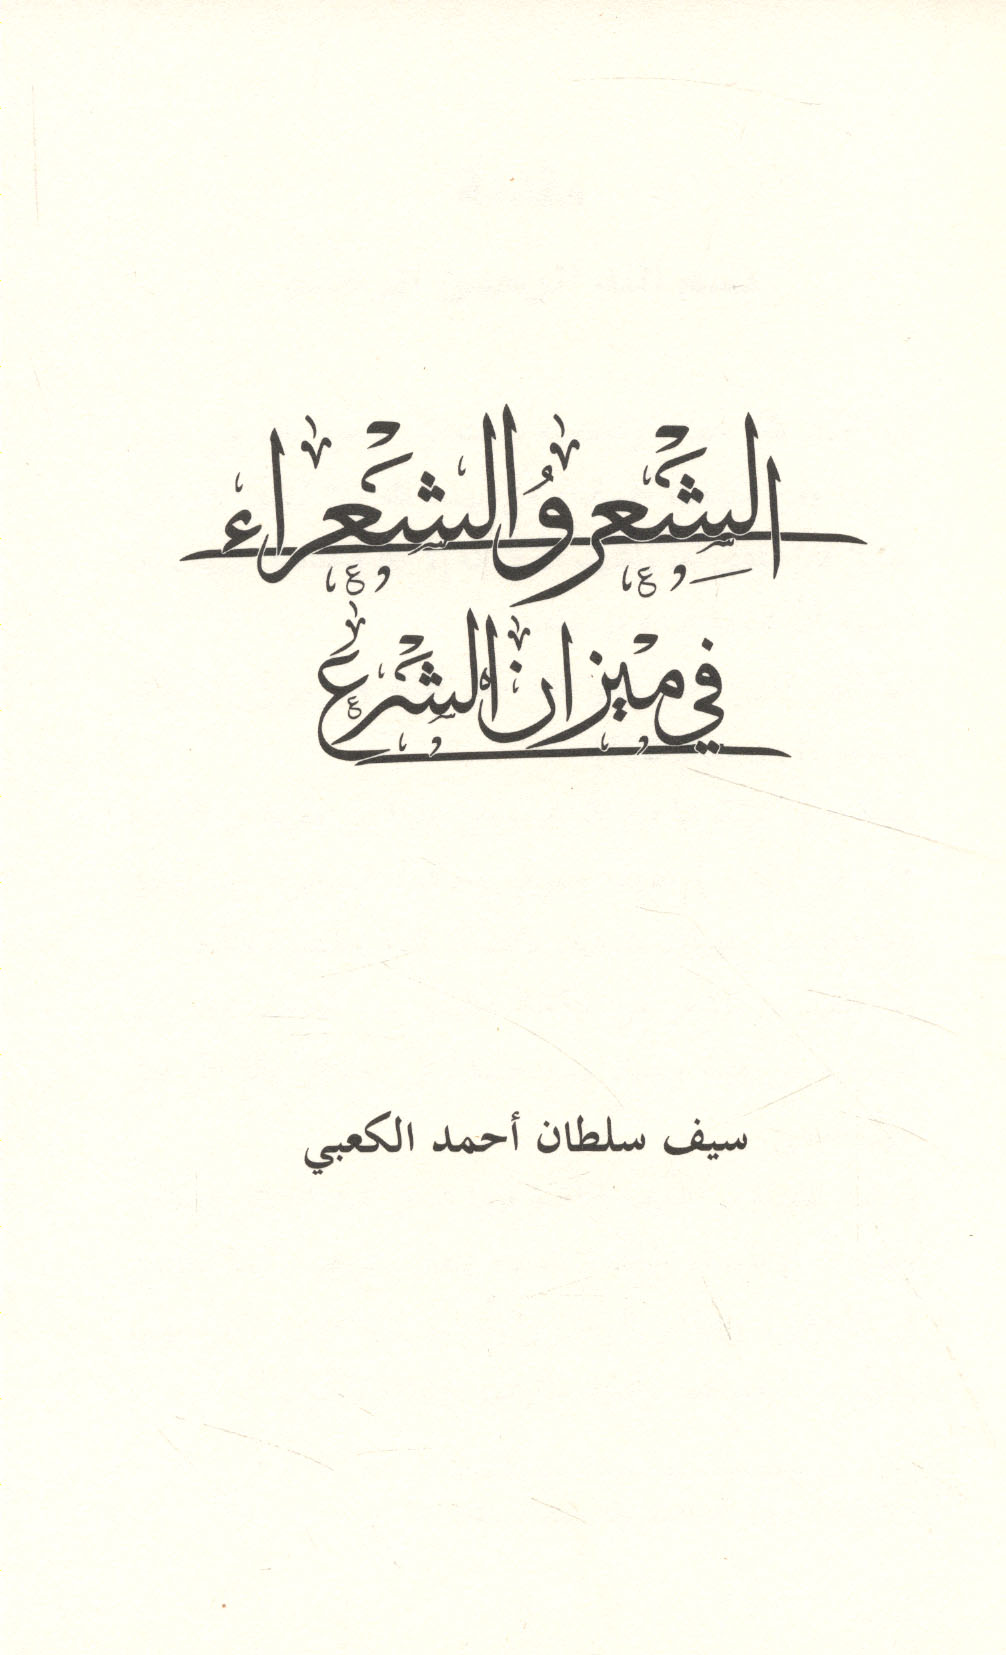 الشعر والشعراء
في ميزان الشرع
سيف سلطان أحمد الكعبي